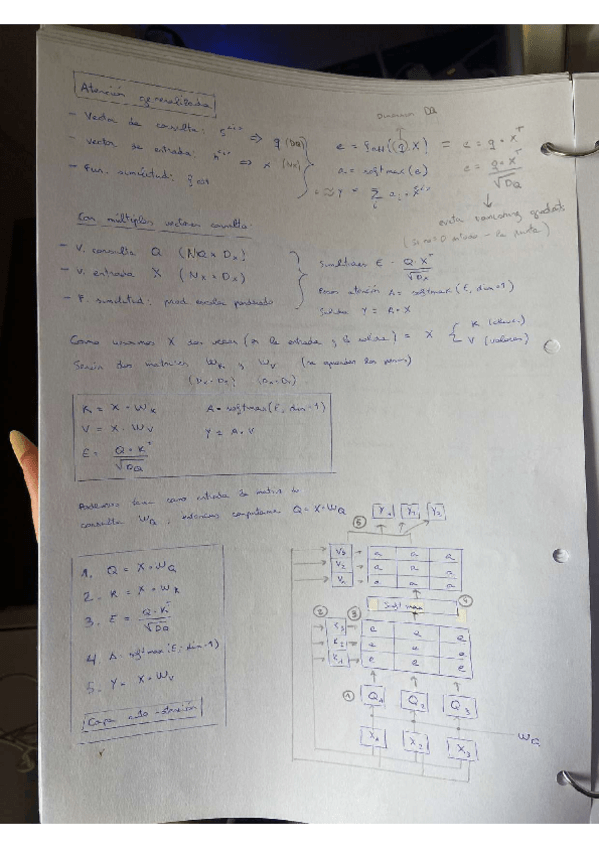 Atención generalizada
- Vector de consulta: => q (DQ)
- Vector de entrada: => x (Nx)
- Fun. similitud: fatt
dimension DQ
e = fatt{(q), X} = e = q · X^T
a = softmax(e)
e = q · X^T / √DQ
Y = Σ
evita vanishing gradients
Con múltiples vectores consulta:
- V. consulta Q (NQ × Dx)
- V. entrada X (Nx × Dx)
- F. similitud: prod. escalar ponderado
Similitudes E = Q · X^T / √Dx
Pesos atención A = softmax(E, dim=1)
Salida Y = A · X
Como usamos X dos veces (en la entrada y la salida) = X { K (claves)
V (valores)
Serán dos matrices WK y WV (se aprenden los pesos)
K = X · WK
V = X · WV
E = Q · K^T / √DQ
A = softmax(E, dim=1)
Y = A · V
Podemos tener como entrada la matriz de
consulta WQ, entonces computamos Q = X · WQ
1. Q = X · WQ
2. K = X · WK
3. E = Q · K^T / √DQ
4. A = softmax(E, dim=1)
5. Y = X · WV
Capa auto-atención
5
Y1 Y2
V3 a a a
V2 a a a
a a a
Softmax 4
2 3
K3 e e e
K2 e e e
K1 e e e
1 Q1 Q2 Q3
WQ
X1 X2 X3